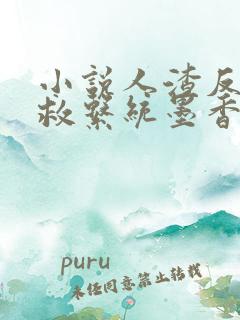 小说人渣反
救系统墨香
puru
未经同意禁止转载